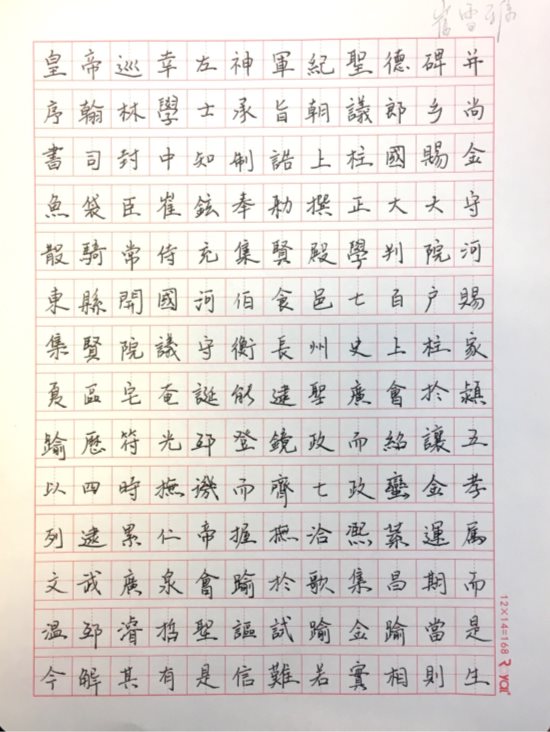 崔雪
皇帝巡幸左神軍紀聖德碑并
序翰林學士承旨朝議郎乡尚
書司封中知制誥上柱國賜金
魚袋臣崔鉉奉勅撰正大大守
散騎常侍充集賢殿學判院河
東縣開國河伯食邑七百户賜
集賢院議守衡長州史上柱家
夏區宅奄誕能逮聖廣會於潁
踰歷符光郅登鏡政而紹讓五
以四時撫璣而齊七政蠻金孝
列逮累仁帝握撫洽熙蒸運属
文武廣泉會踰於歌集昌期而
温郅濬哲聖謳試踰金踰當是
今解其有是信難若實相則生
12×14=168